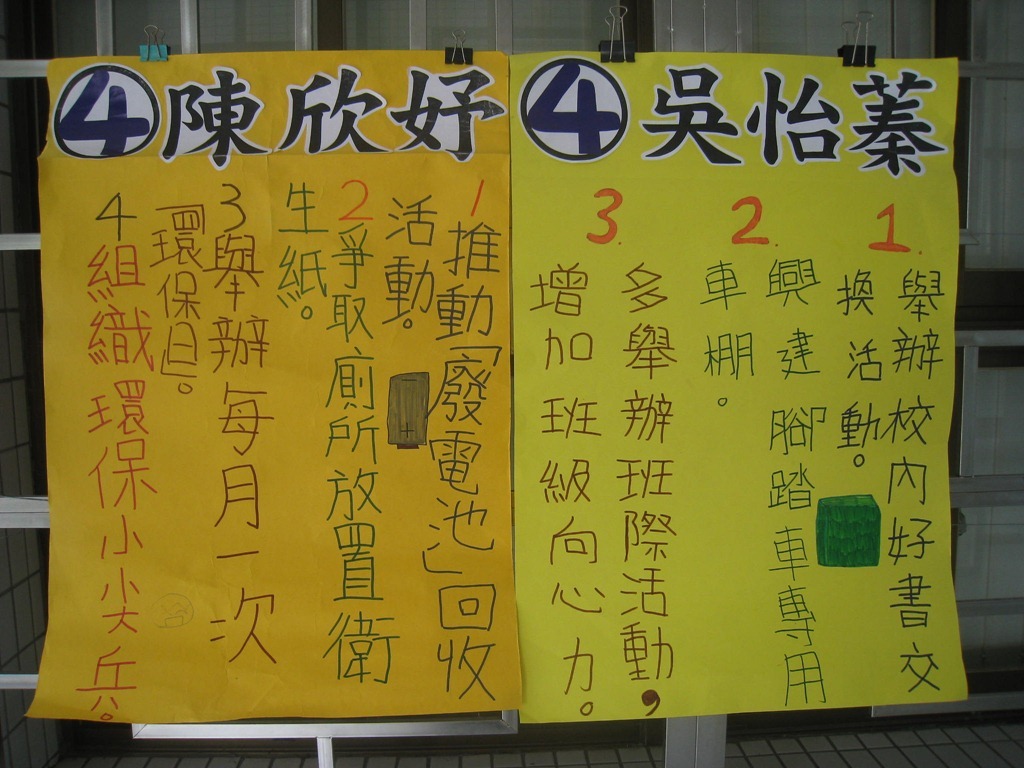 4 陳欣妤
1 推動「廢電池」回收
活動。
2 爭取廁所放置衛
生紙。
3 舉辦每月一次
「環保日」。
4 組織環保小尖兵。
4 吳怡蓁
1. 舉辦校內好書交
換活動。
2. 興建腳踏車專用
車棚。
3. 多舉辦班際活動,
增加班級向心力。